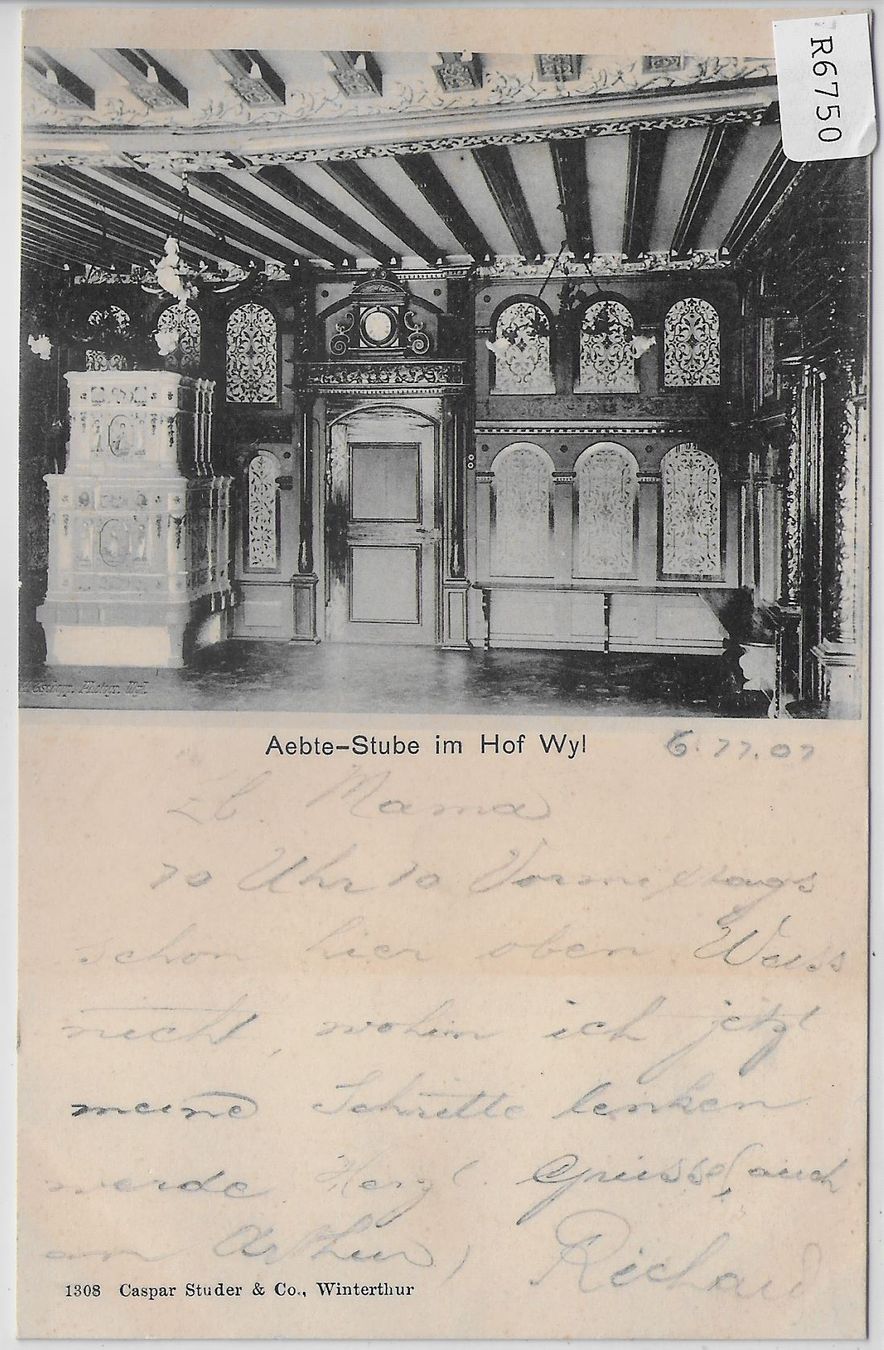 R6750
Photogr. Wyl.
Aebte-Stube im Hof Wyl
6.11.07
Lb. Mama
10 Uhr 10 Vormittags
schon hier oben. Weiss
nicht, wohin ich jetzt
meine Schritte lenken
werde. Herzl. Grüsse, auch
an Arthur, Richard
1308 Caspar Studer & Co., Winterthur